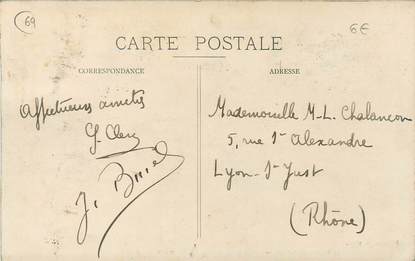 69
6€
CARTE POSTALE
CORRESPONDANCE
ADRESSE
Affectueuses amitiés
Mademoiselle M-L. Chalancon
5, rue St Alexandre
Lyon-St Just
(Rhône)